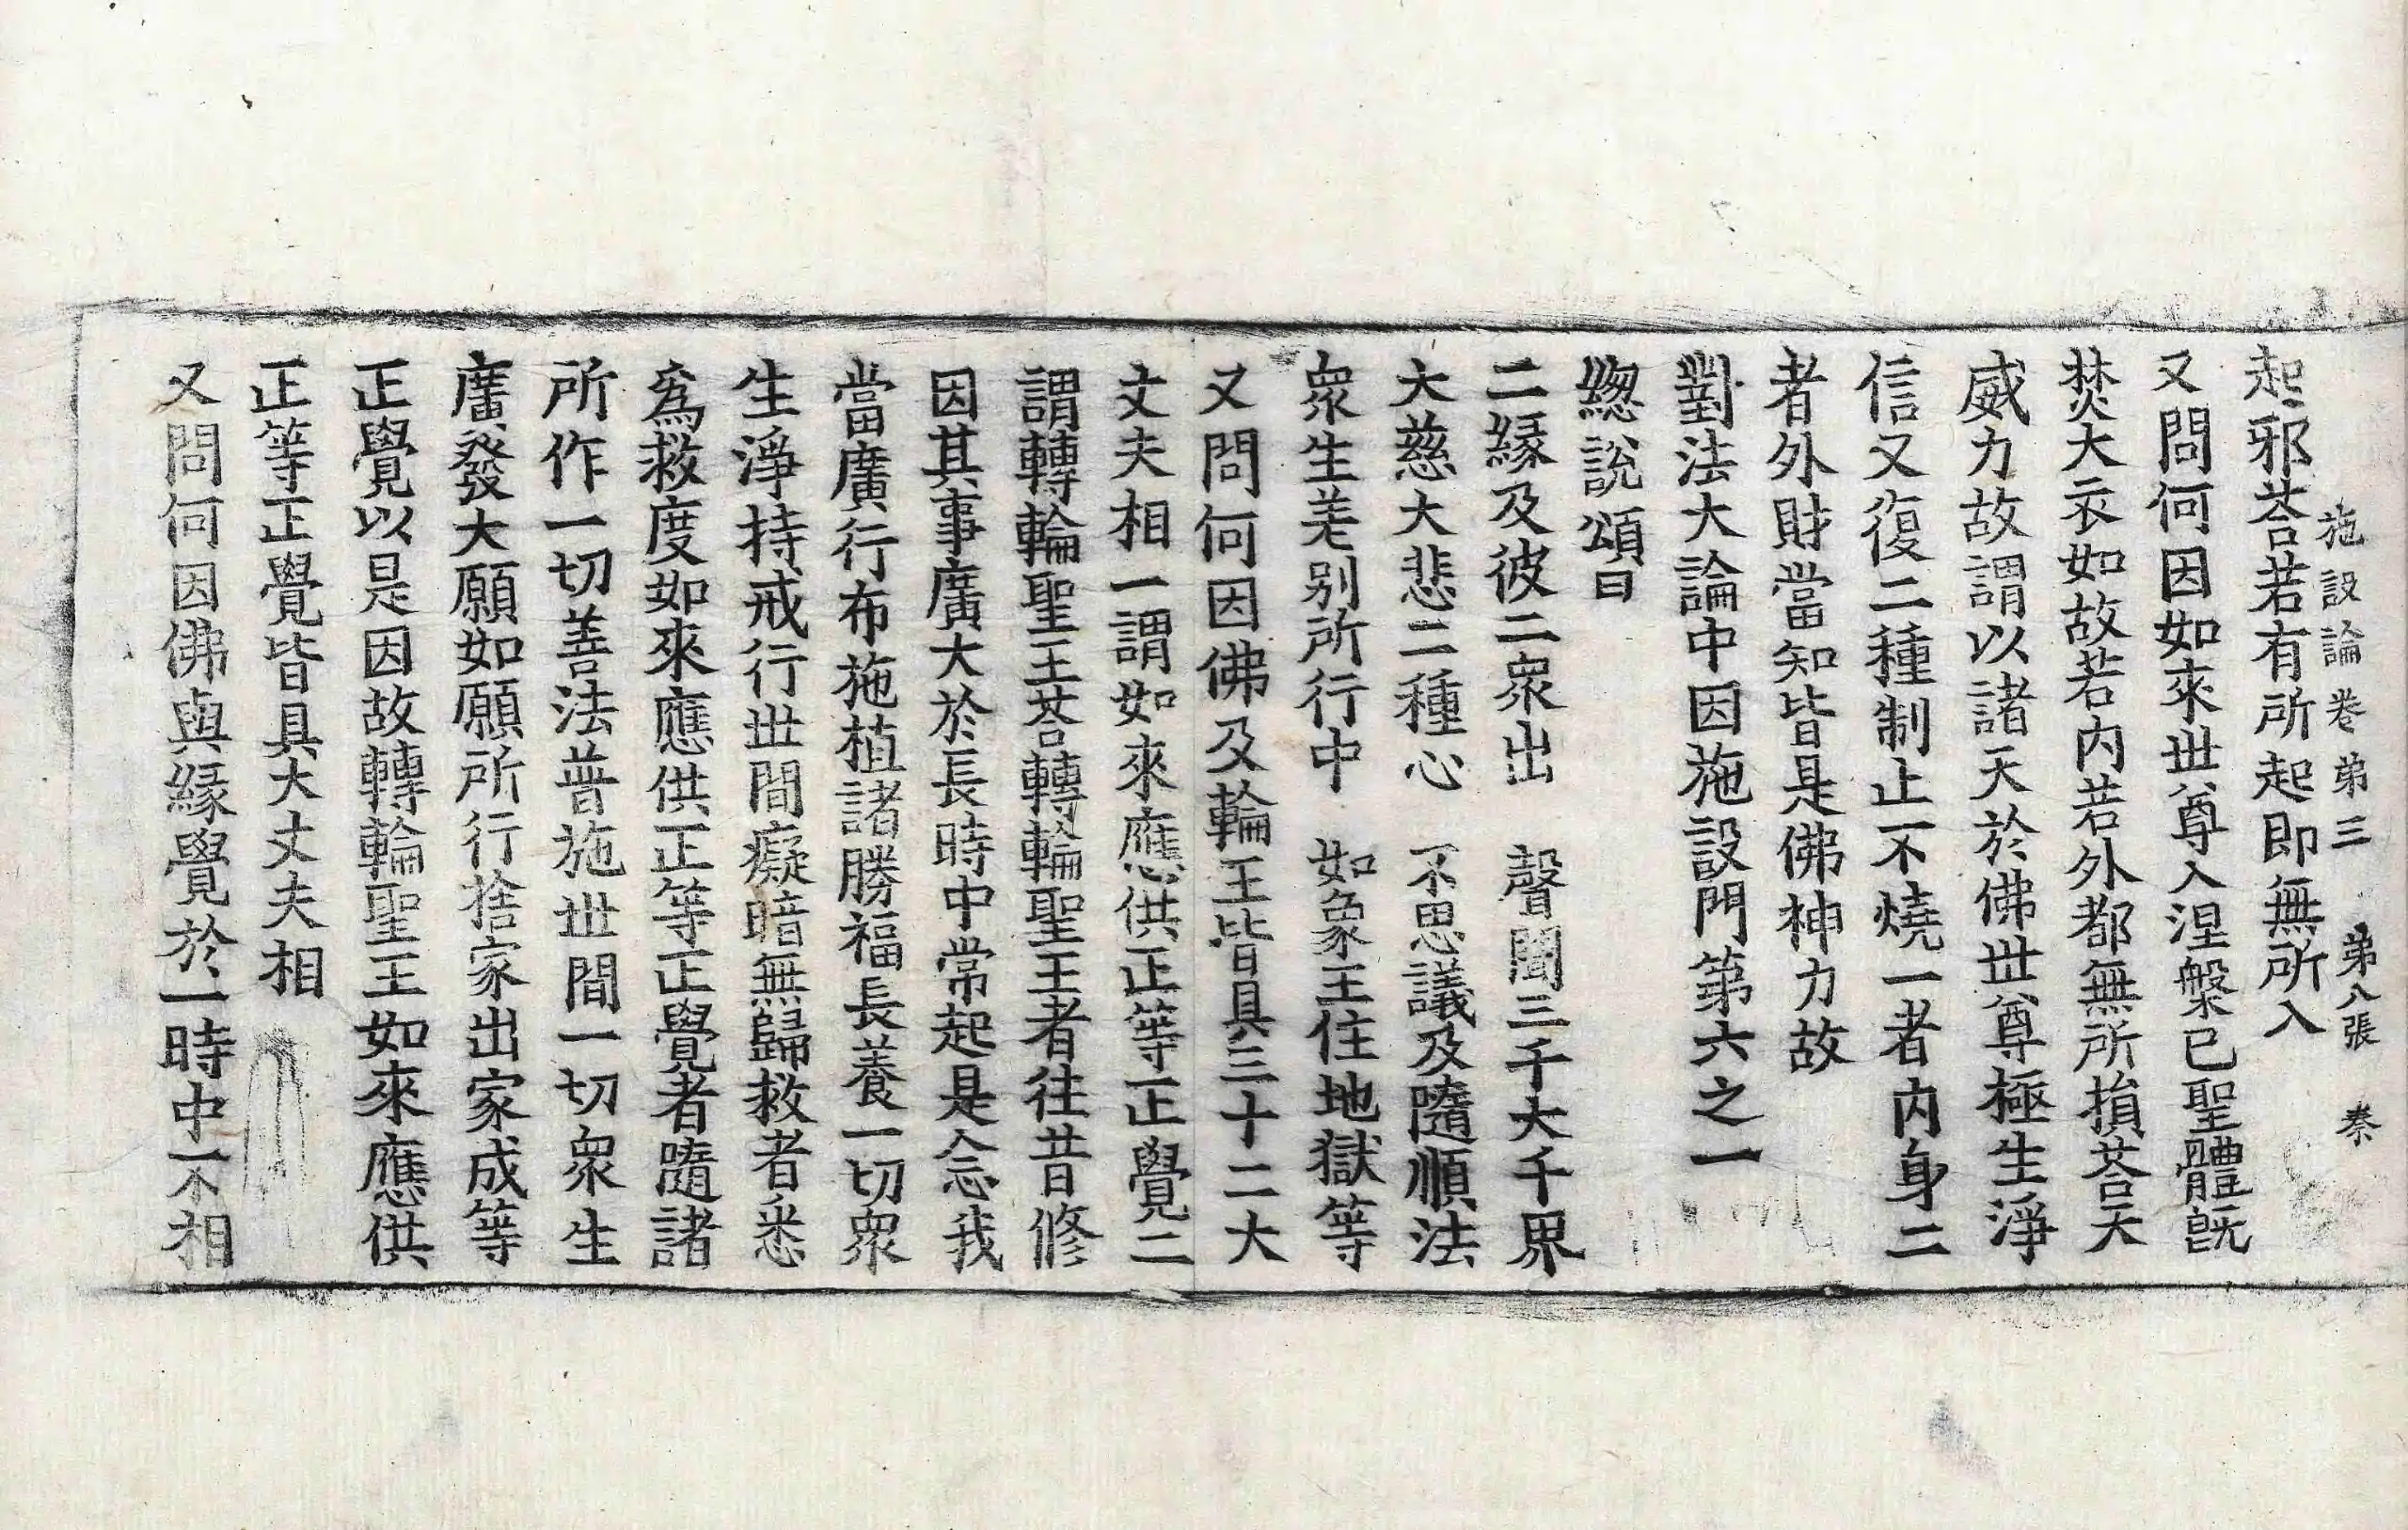 施設論卷弟三 弟八張 秦
起邪荅若有所起即無所入
又問何因如來世尊入涅槃已聖體旣
焚大衣如故若內若外都無所損荅天
威力故謂以諸天於佛世尊極生淨
信又復二種制止不燒一者內身二
者外財當知皆是佛神力故
對法大論中因施設門第六之一
緫說頌曰
二緣及彼二衆出 聲聞三千大千界
大慈大悲二種心 不思議及隨順法
衆生差別所行中 如象王住地獄等
又問何因佛及輪王皆具三十二大
丈夫相一謂如來應供正等正覺二
謂轉輪聖王荅轉輪聖王者往昔修
因其事廣大於長時中常起是念我
當廣行布施植諸勝福長養一切衆
生淨持戒行世間癡暗無歸救者悉
爲救度如來應供正等正覺者隨諸
所作一切善法普施世間一切衆生
廣發大願如願所行捨家出家成等
正覺以是因故轉輪聖王如來應供
正等正覺皆具大丈夫相
又問何因佛與緣覺於一時中不相